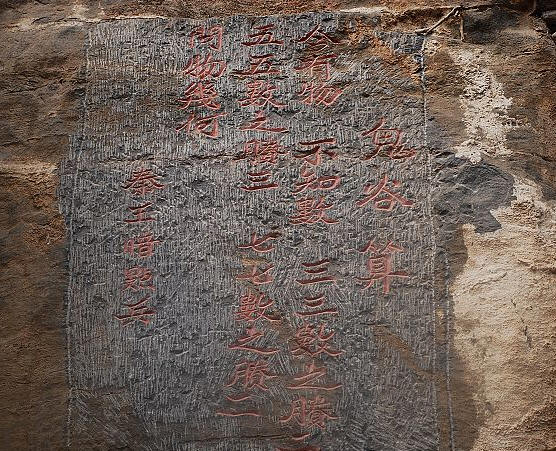 鬼谷算
今有物 不知數 三三數之賸二
五五數之賸三 七七數之賸二
問物幾何
秦王暗點兵